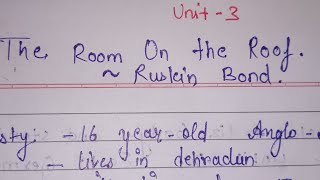 Unit - 3
The Room On the Roof.
~ Ruskin Bond.
sty: - 16 year - old Anglo -
- lives in dehradun